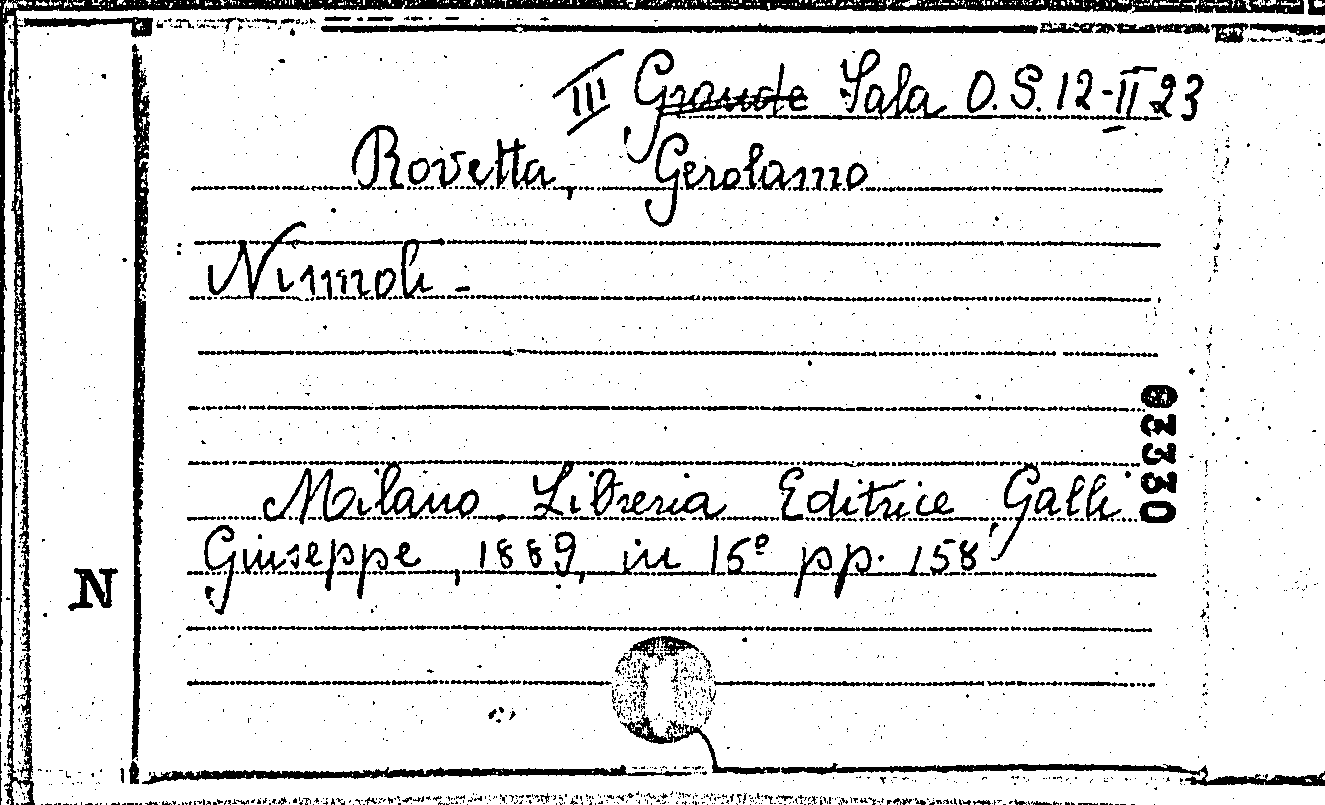 III Grande Sala O.S. 12-II 23
Rovetta, Gerolamo
Ninnoli -
Milano. Libreria Editrice Galli
Giuseppe, 1889, in 16º pp. 158
03330
N